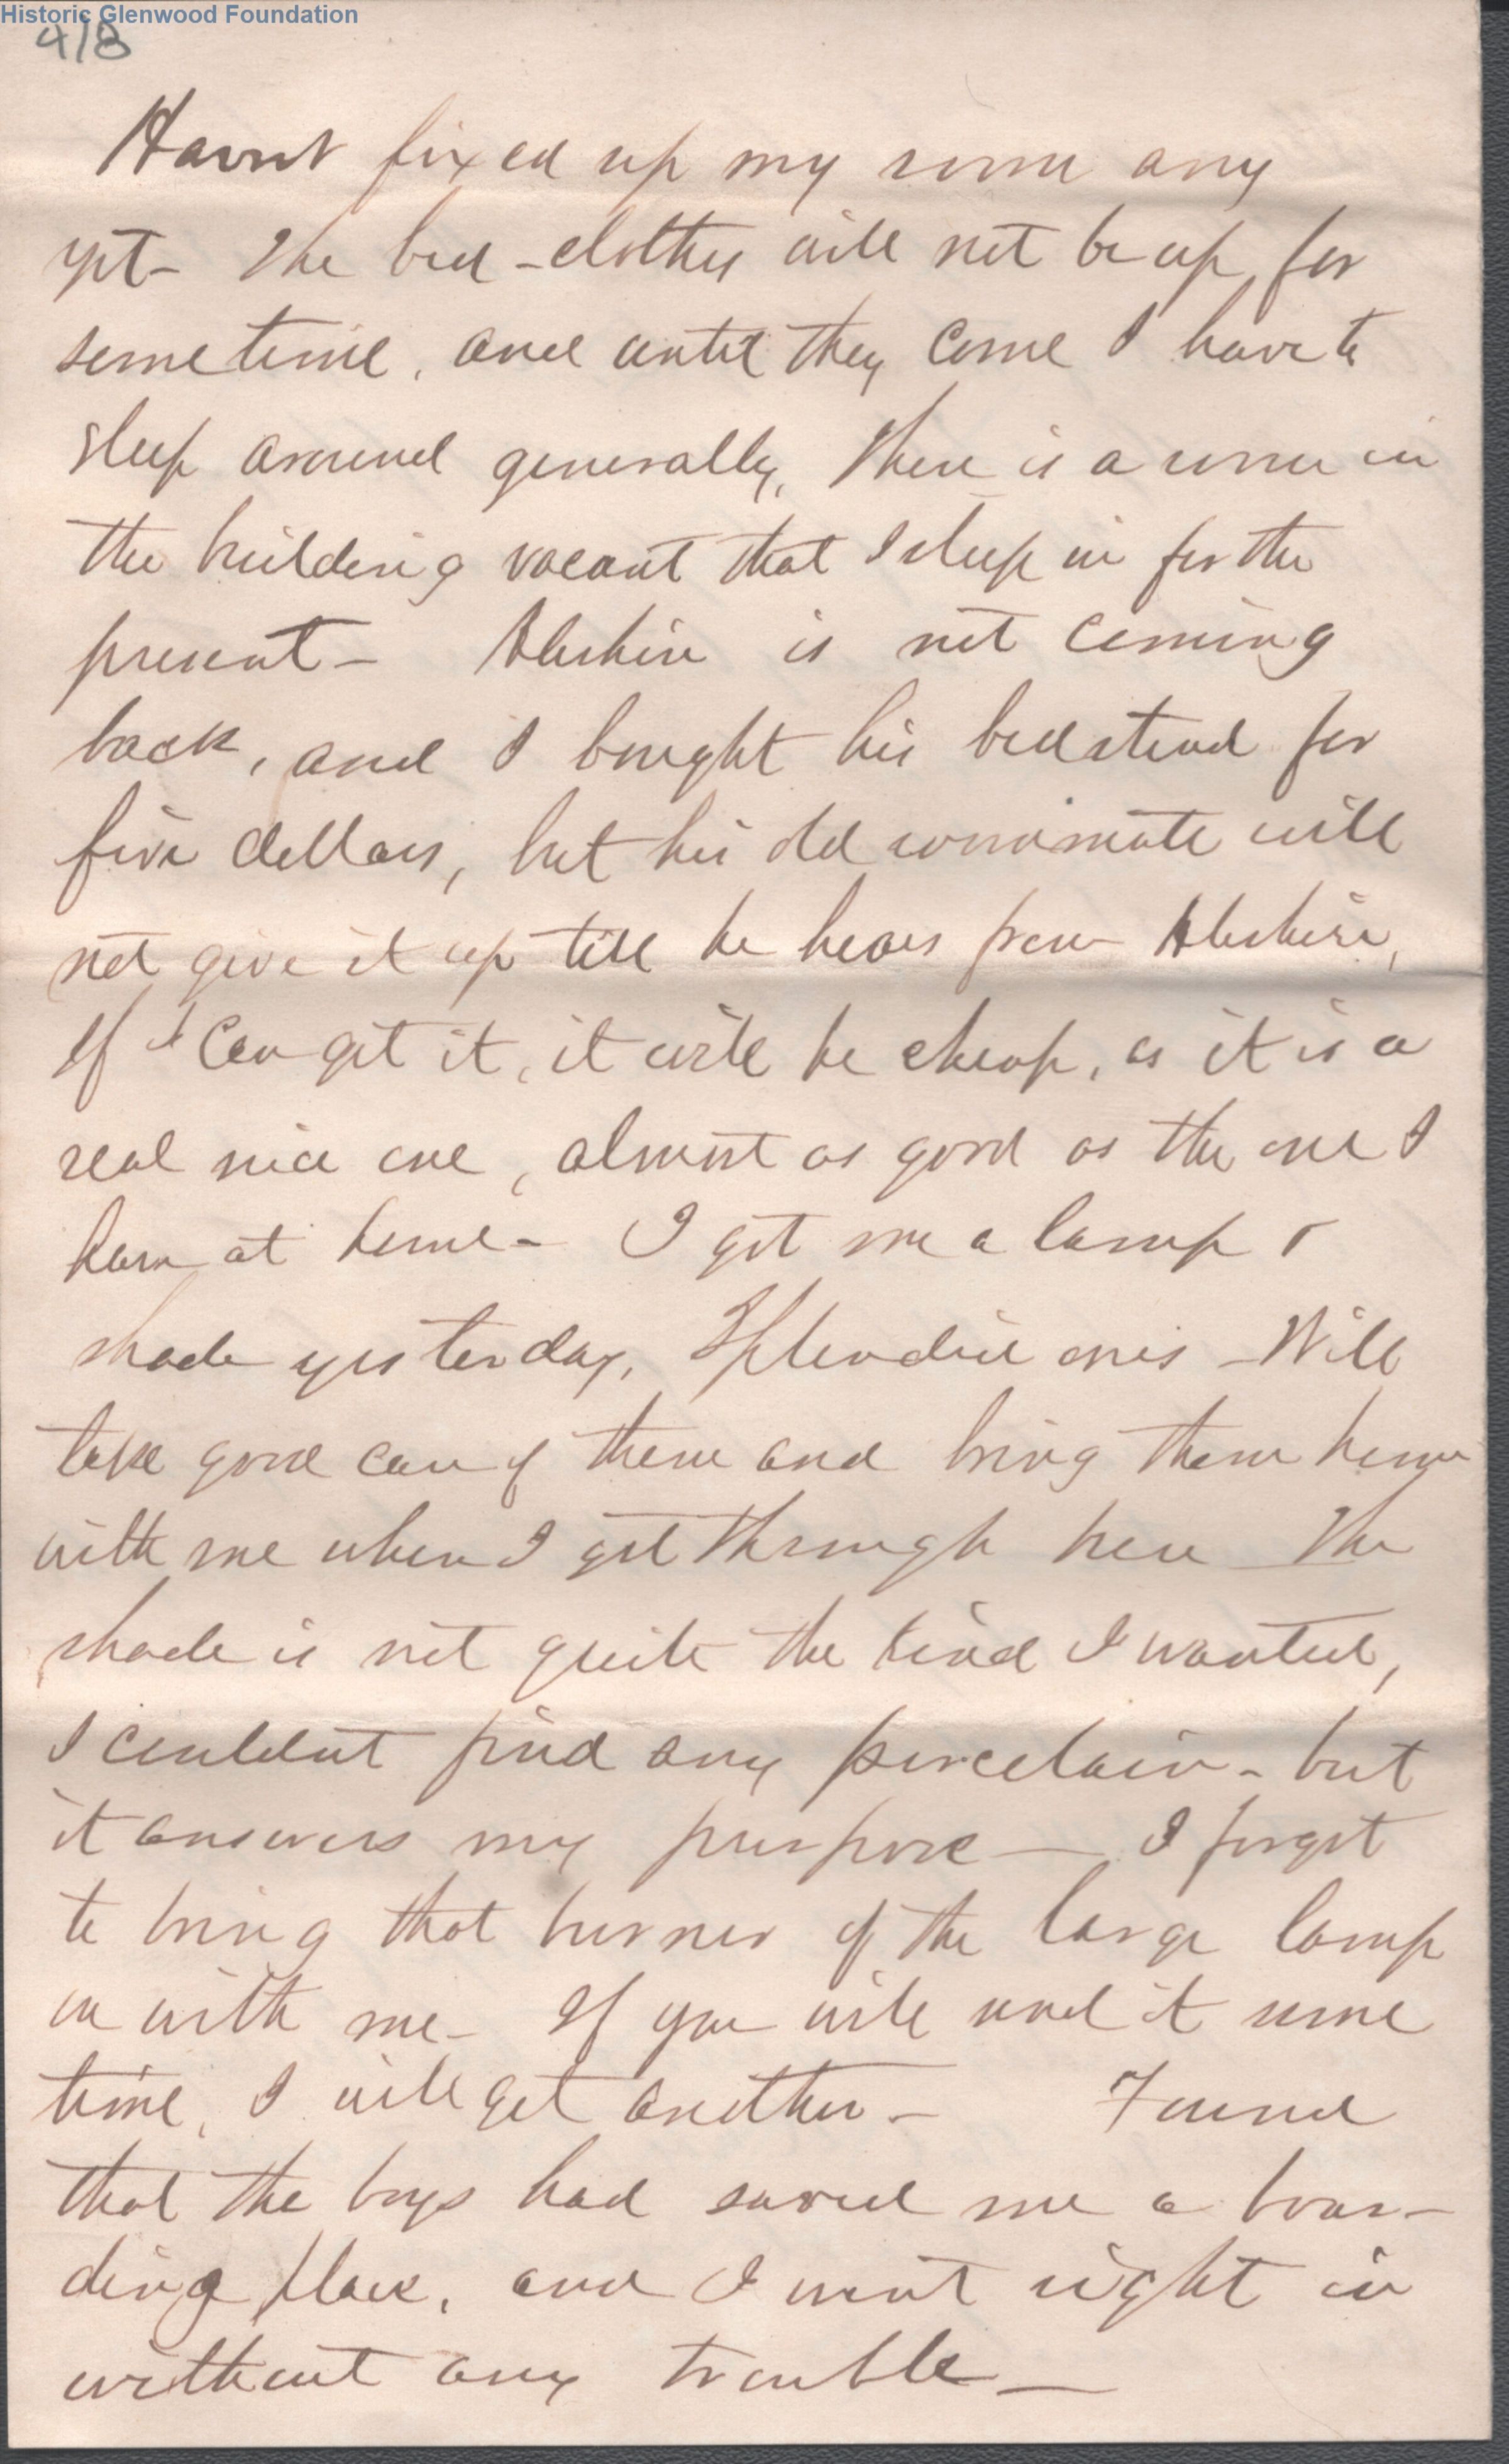 Historic Glenwood Foundation
4/8
Havnt fixed up my room any
yet - The bed-clothes will not be up for
sometime, and until they come I have to
sleep around generally, There is a room in
the building vacant that I sleep in for the
present - is not coming
back, and I bought his bedstead for
five dollars, but his old roommate will
not give it up till he hears from
If I can get it, it will be cheap, as it is a
real nice one, almost as good as the one I
have at home - I got me a lamp &
shade yesterday, Splendid ones - Will
take good care of them and bring them home
with me when I get through here The
shade is not quite the kind I wanted,
I couldnt find any porcelain - but
it answers my purpose — I forgot
to bring that burner of the large lamp
in with me - If you will send it some
time, I will get another - Found
that the boys had saved me a boar-
ding place, and I went right in
without any trouble —